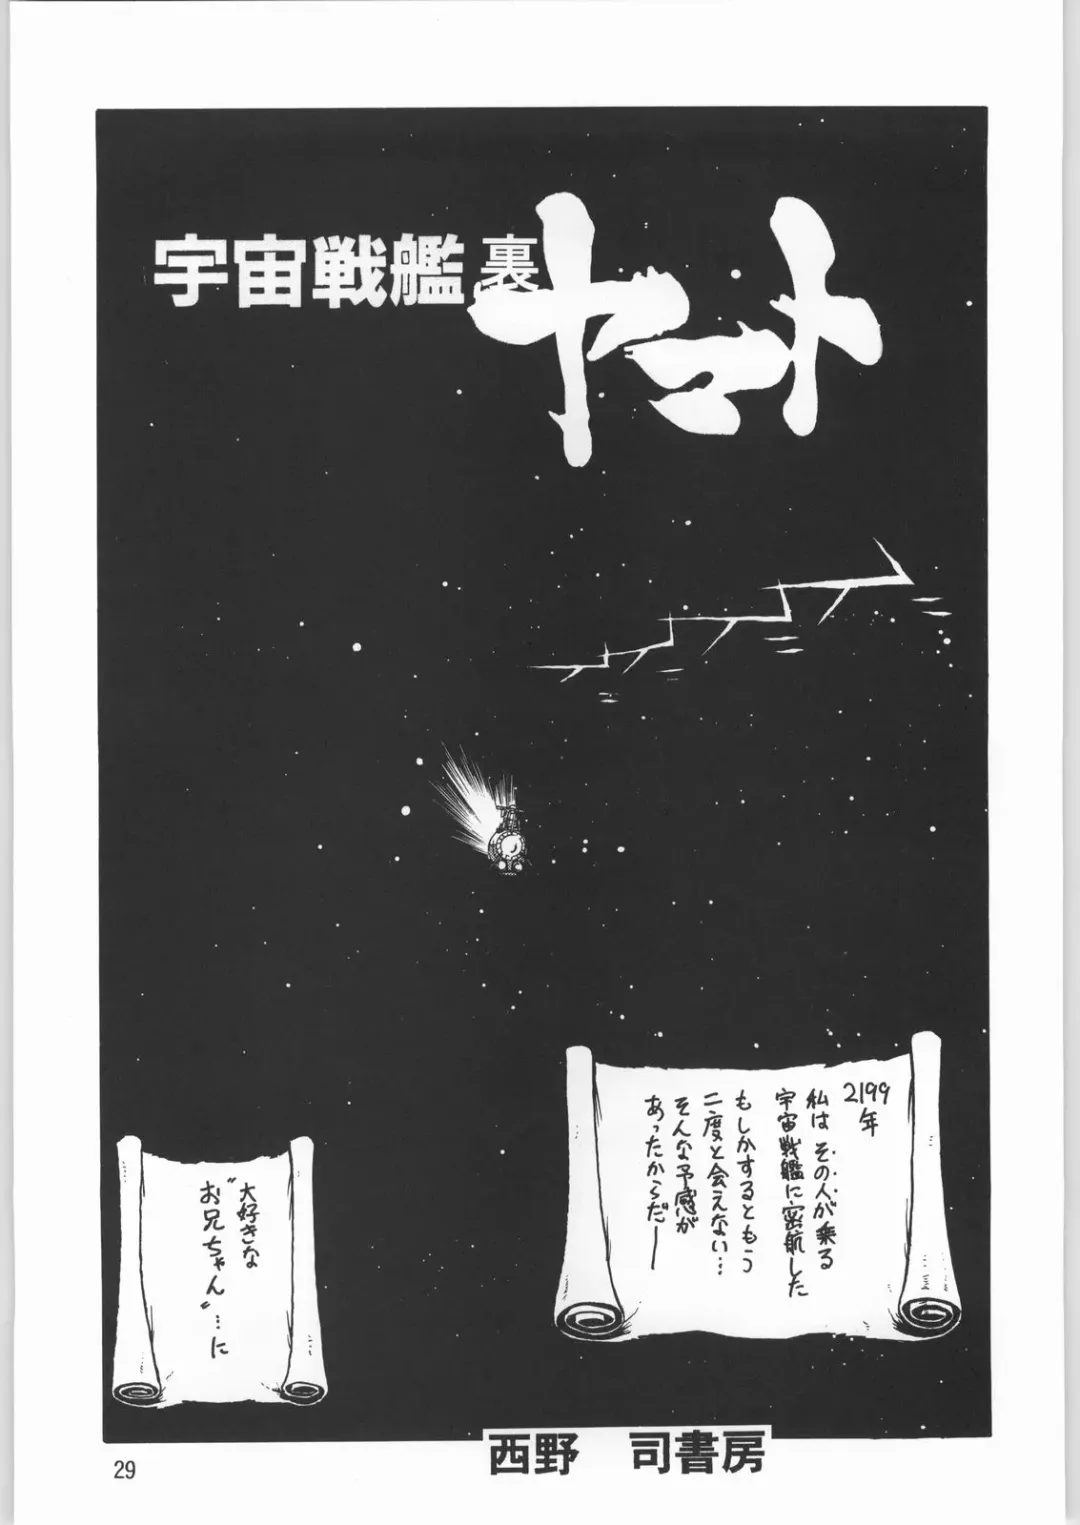 宇宙戦艦裏ヤマト
2199年
私はその人が乗る
宇宙戦艦に密航した
もしかするともう
二度と会えない…
そんな予感が
あったからだ—
大好きな
〝お兄ちゃん〟…に
西野　司書房
29